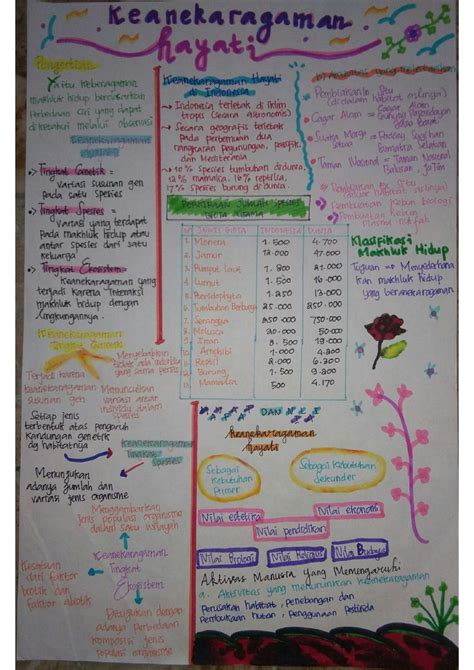 Keanekaragaman
hayati
Pengertian
Yaitu keberagaman
makhluk hidup berdasarkan
perbedaan ciri yang dapat
diketahui melalui observasi
Keanekaragaman
Tingkat Genetik =
variasi susunan gen
pada satu spesies
Tingkat Spesies =
variasi yang terdapat
pada makhluk hidup atau
antar spesies dari satu
keluarga
Tingkat Ekosistem =
Keanekaragaman yang
terjadi karena interaksi
makhluk hidup dengan
lingkungannya.
Keanekaragaman Hayati
di Indonesia
Indonesia terletak di Iklim
tropis (secara astronomis)
Secara geografis terletak
pada pertemuan dua
rangkaian pegunungan, pasifik,
dan Mediterania
10 % spesies tumbuhan didunia,
12 % mamalia, 16 % reptilia,
17 % spesies burung di dunia.
Perbandingan Jumlah Spesies
Indonesia Dunia
1. Monera 1.500 4.700
2. Jamur 12.000 47.000
3. Rumput Laut 1.800 21.000
4. Lumut 1.500 16.000
5. Pteridophyta 1.250 13.000
6. Tumbuhan Berbunga 25.000 250.000
7. Serangga 250.000 750.000
8. Moluska 20.000 50.000
9. Ikan 8.500 19.000
10. Amphibi 1.000 4.200
11. Reptil 2.000 6.300
12. Burung 1.500 9.200
13. Mamalia 500 4.170
Pembiakan In Situ
(di dalam habitat aslinya)
Cagar Alam
Suaka Marga
Taman Nasional
Taman Nasional
Klasifikasi
Makhluk Hidup
Tujuan Menyederhana
kan makhluk hidup
yang beranekaragaman
Keanekaragaman
Tingkat Genetik
Terjadi karena
keanekaragaman
susunan gen
Menyebabkan
Memunculkan
variasi antar
individu dalam
1 spesies
Setiap jenis
terbentuk atas pengaruh
kandungan genetik
dg habitatnya
Keanekaragaman
Tingkat
Spesies
Menunjukan
adanya jumlah dan
variasi jenis organisme
Menggambarkan
jenis populasi organisme
dalam satu wilayah
Keanekaragaman
Tingkat
Ekosistem
Kesatuan
dari faktor
biotik dan
faktor abiotik
Ditunjukan dengan
adanya Perbedaan
komposisi jenis
populasi organisme
DAN
keanekaragaman
hayati
Sebagai
Kebutuhan
Primer
Sebagai Kebutuhan
Sekunder
Nilai estetika
Nilai ekonomi
Nilai pendidikan
Nilai Biologi
Nilai Budaya
Aktivitas Manusia Yang Memengaruhi
a. Aktivitas yang menurunkan keanekaragaman
Perusakan habitat, penebangan dan
Pembukaan hutan, Penggunaan Pestisida